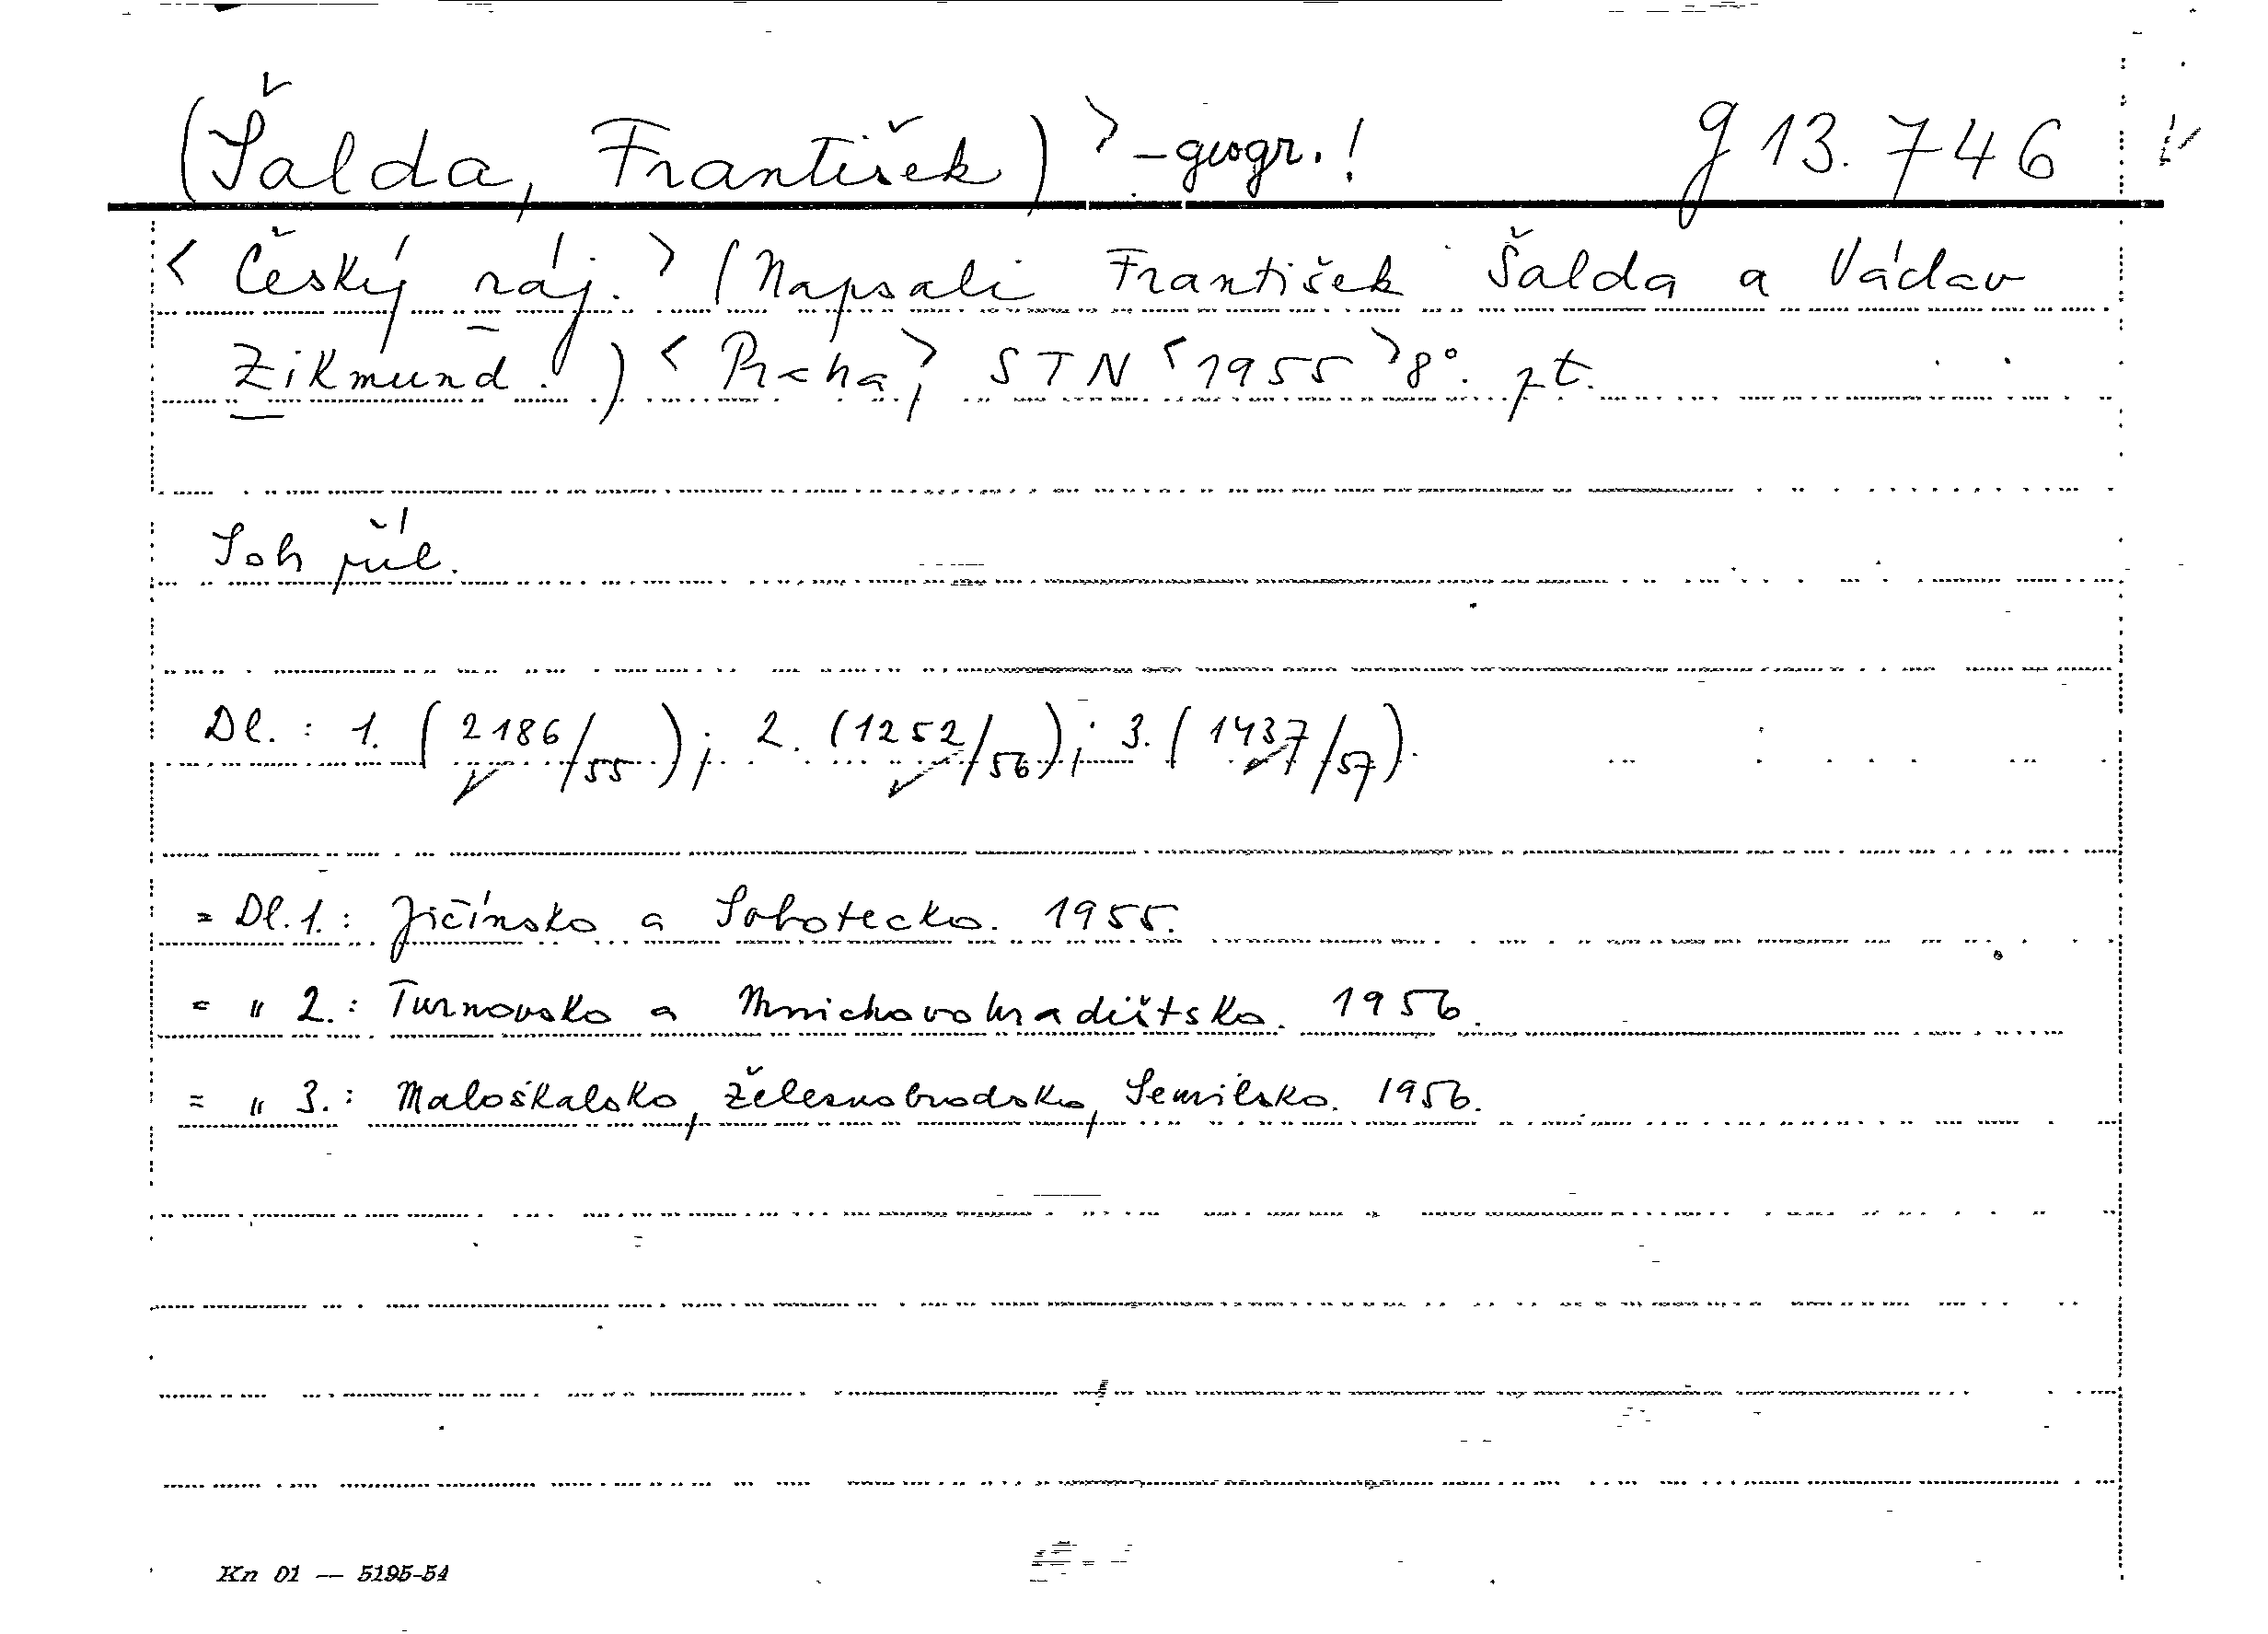 (Šalda, František) > – geogr.! g 13.746
< Český ráj. > (Napsali František Šalda a Václav
Zikmund.) < Praha, > STN < 1955 > 8°. pt.
Soh příl.
Dl. : 1. (2186/55); 2. (1252/56); 3. (1437/57).
= Dl. 1. : Jičínsko a Sobotecko. 1955.
= " 2. : Turnovsko a Mnichovohradištsko. 1956.
= " 3. : Maloskalsko, Železnobrodsko, Semilsko. 1956.
Kn 01 — 5195-54